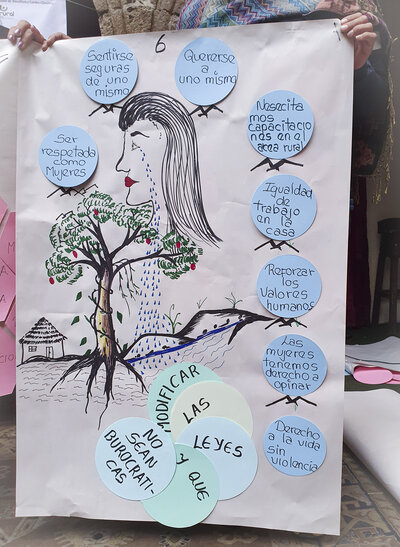 6
Sentirse
seguras
de uno
mismo
Quererse
a
uno mismo
Ser
respetada
como
Mujeres
Necesita
mos
capacitacio
nes en el
area rural
Igualdad
de
trabajo
en la
casa
Reforzar
los
Valores
humanos
Las
mujeres
tenemos
derecho a
opinar
Derecho
a la vida
sin
violencia
MODIFICAR
LAS
LEYES
Y QUE
NO
SEAN
BUROLCRATI-
CAS